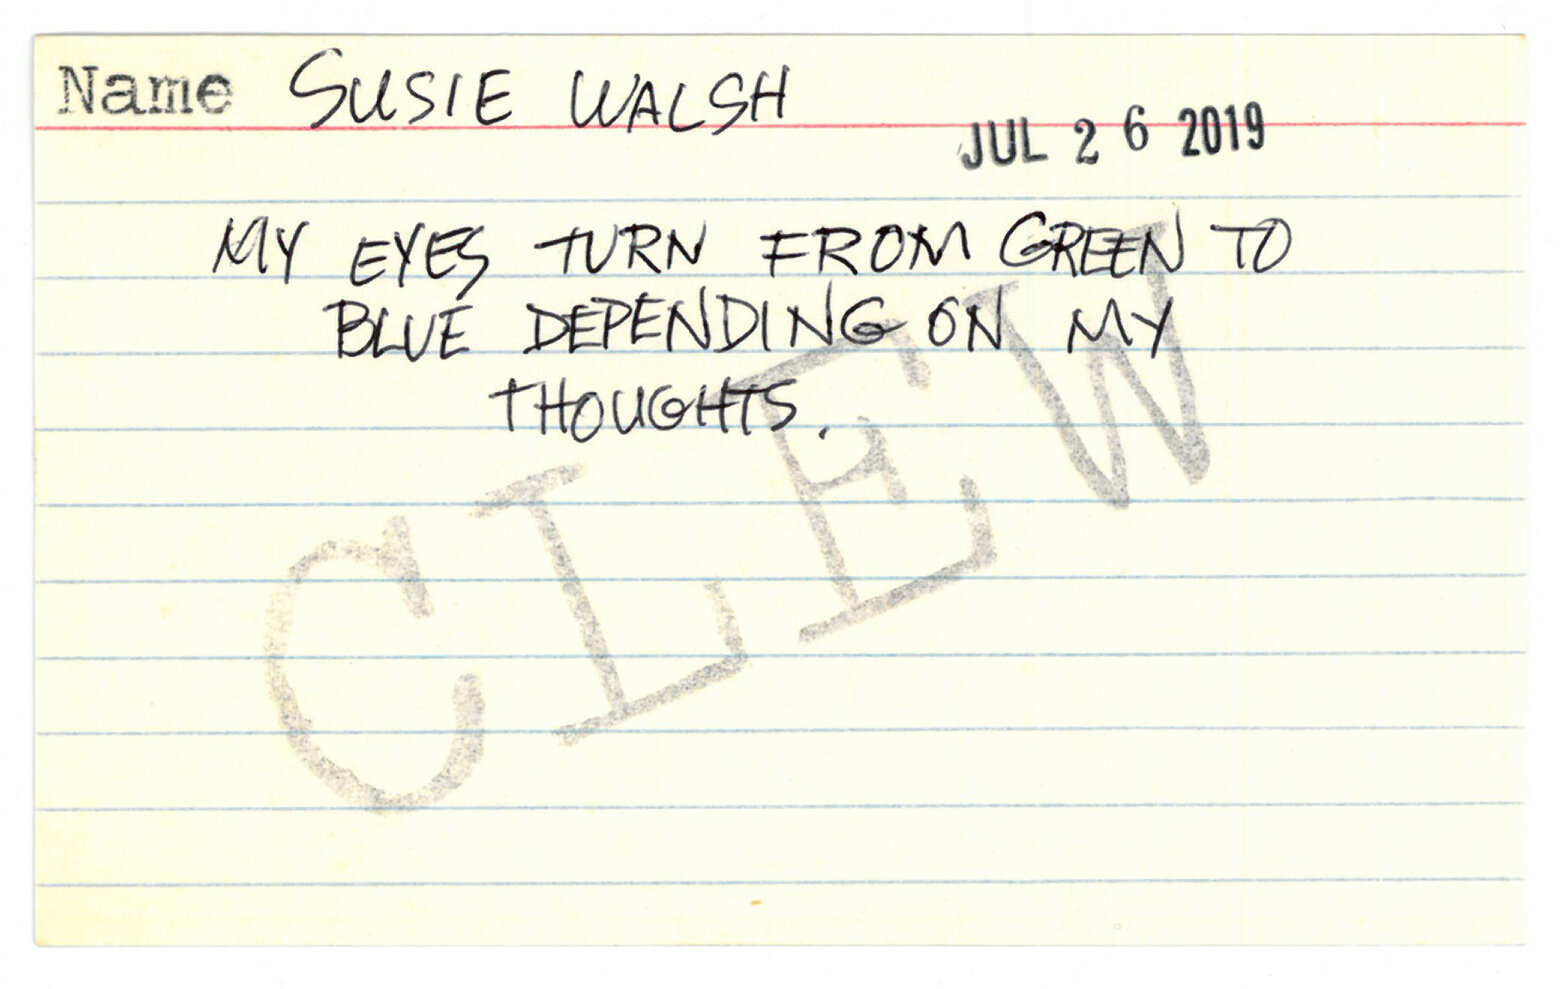 Name SUSIE WALSH
JUL 26 2019
MY EYES TURN FROM GREEN TO
BLUE DEPENDING ON MY
THOUGHTS.
CLEW